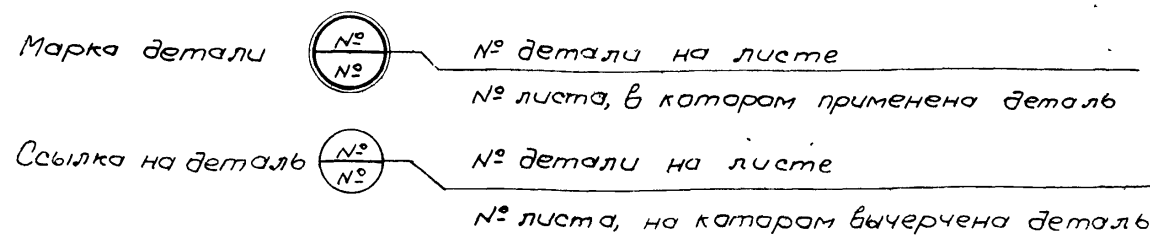 Марка детали № № № детали на листе
№ листа, в котором применена деталь
Ссылка на деталь № № № детали на листе
№ листа, на котором вычерчена деталь